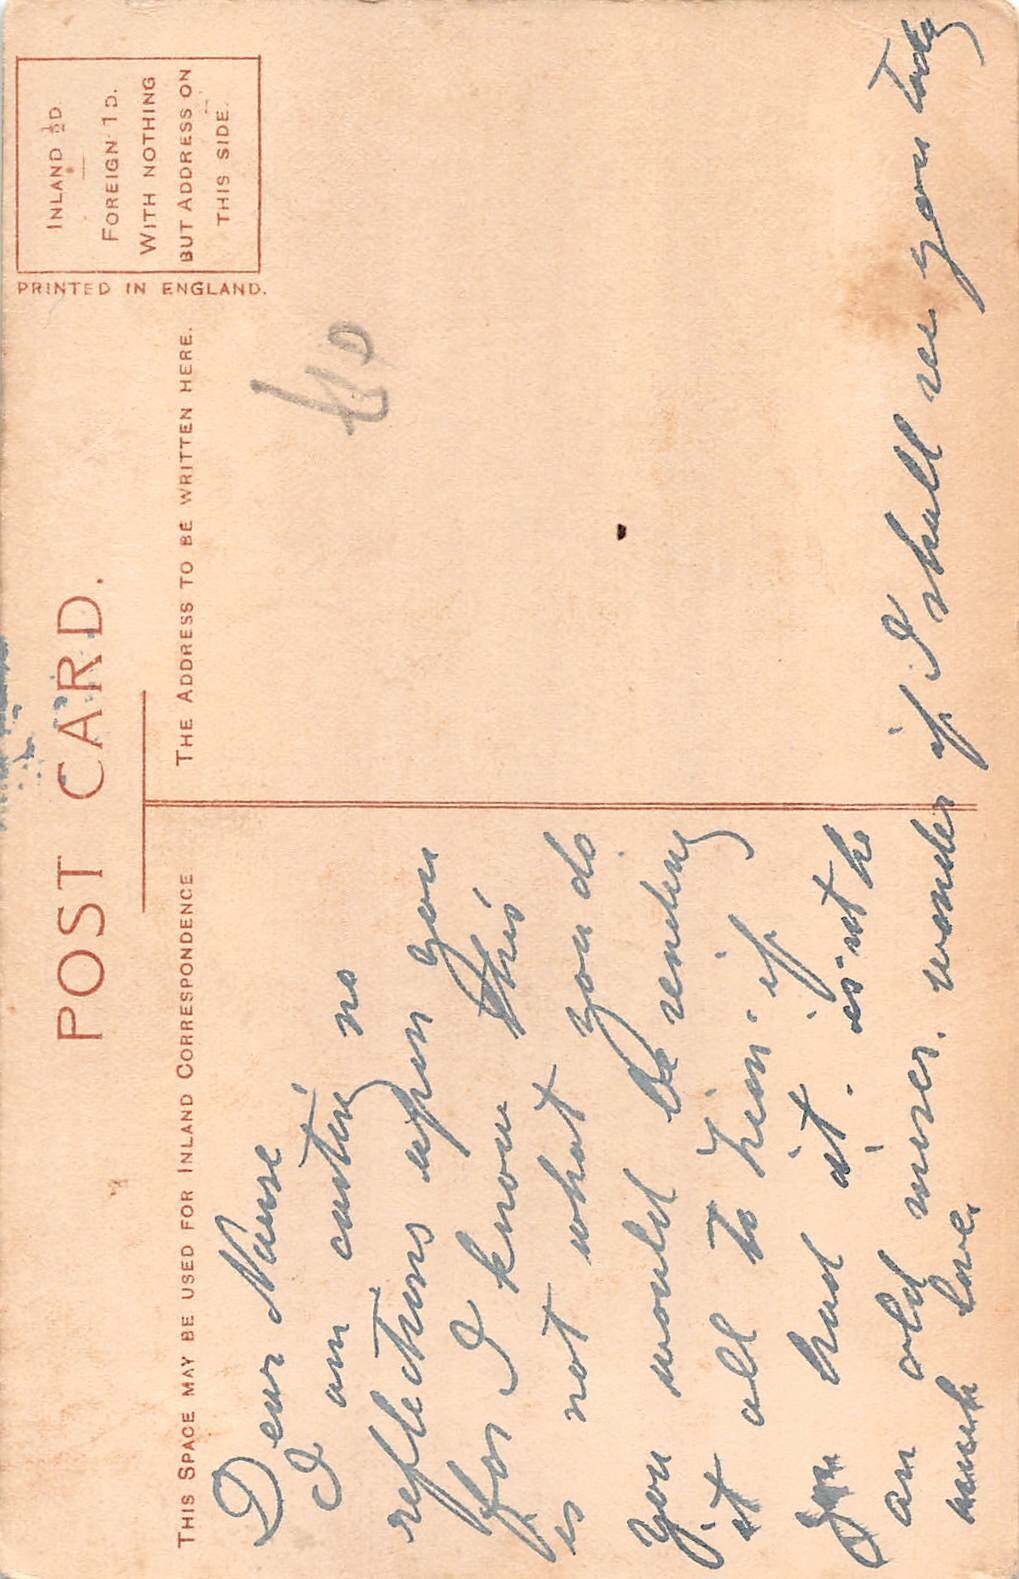 POST CARD.
THIS SPACE MAY BE USED FOR INLAND CORRESPONDENCE
THE ADDRESS TO BE WRITTEN HERE.
INLAND ½D.
FOREIGN 1D.
WITH NOTHING
BUT ADDRESS ON
THIS SIDE.
PRINTED IN ENGLAND.
Dear Nurse
I am casting no
reflections upon you
for I know this
is not what you do
you would be sending
it all to him if
you had it. is nt he
an old miser. wonder if I shall see you today
much love.